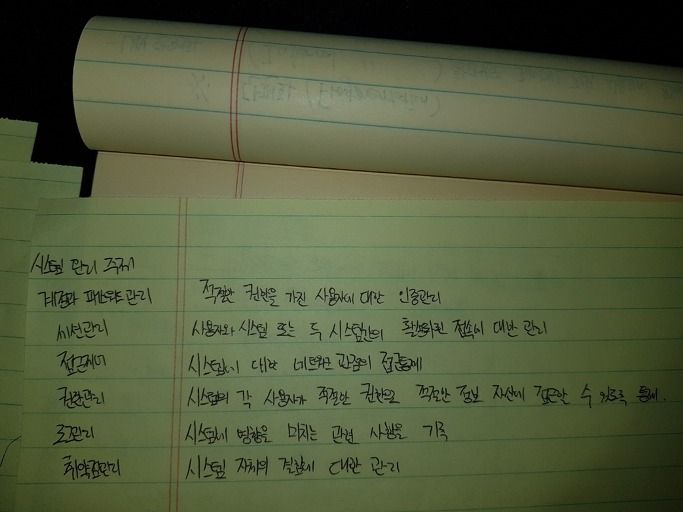 시스템 관리 주제
계정과 패스워드 관리 적절한 권한을 가진 사용자에 대한 인증관리
세션관리 사용자와 시스템 또는 두 시스템간의 활성화된 접속에 대한 관리
접근제어 시스템에 대한 네트워크 관점의 접근통제
권한관리 시스템의 각 사용자가 적절한 권한으로 적절한 정보 자산에 접근할 수 있도록 통제.
로그관리 시스템에 영향을 미치는 관련 사항을 기록
취약점관리 시스템 자체의 결함에 대한 관리